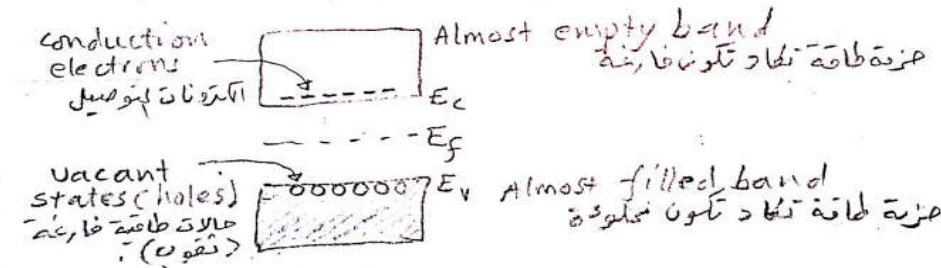 conduction
electrons
الكترونات التوصيل
Almost empty band
حزمة طاقة تكاد تكون فارغة
Ec
Ef
vacant
states (holes)
حالات طاقية فارغة
(ثقوب).
Ev
Almost filled band
حزمة طاقة تكاد تكون مملوءة